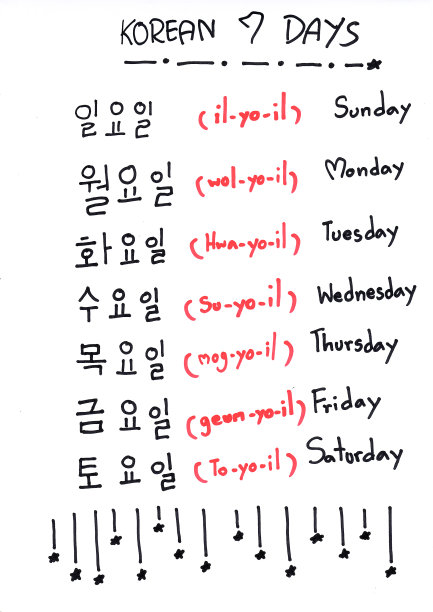 KOREAN 7 DAYS
일요일 (il-yo-il) Sunday
월요일 (wol-yo-il) Monday
화요일 (Hwa-yo-il) Tuesday
수요일 (Su-yo-il) Wednesday
목요일 (mog-yo-il) Thursday
금요일 (geum-yo-il) Friday
토요일 (To-yo-il) Saturday